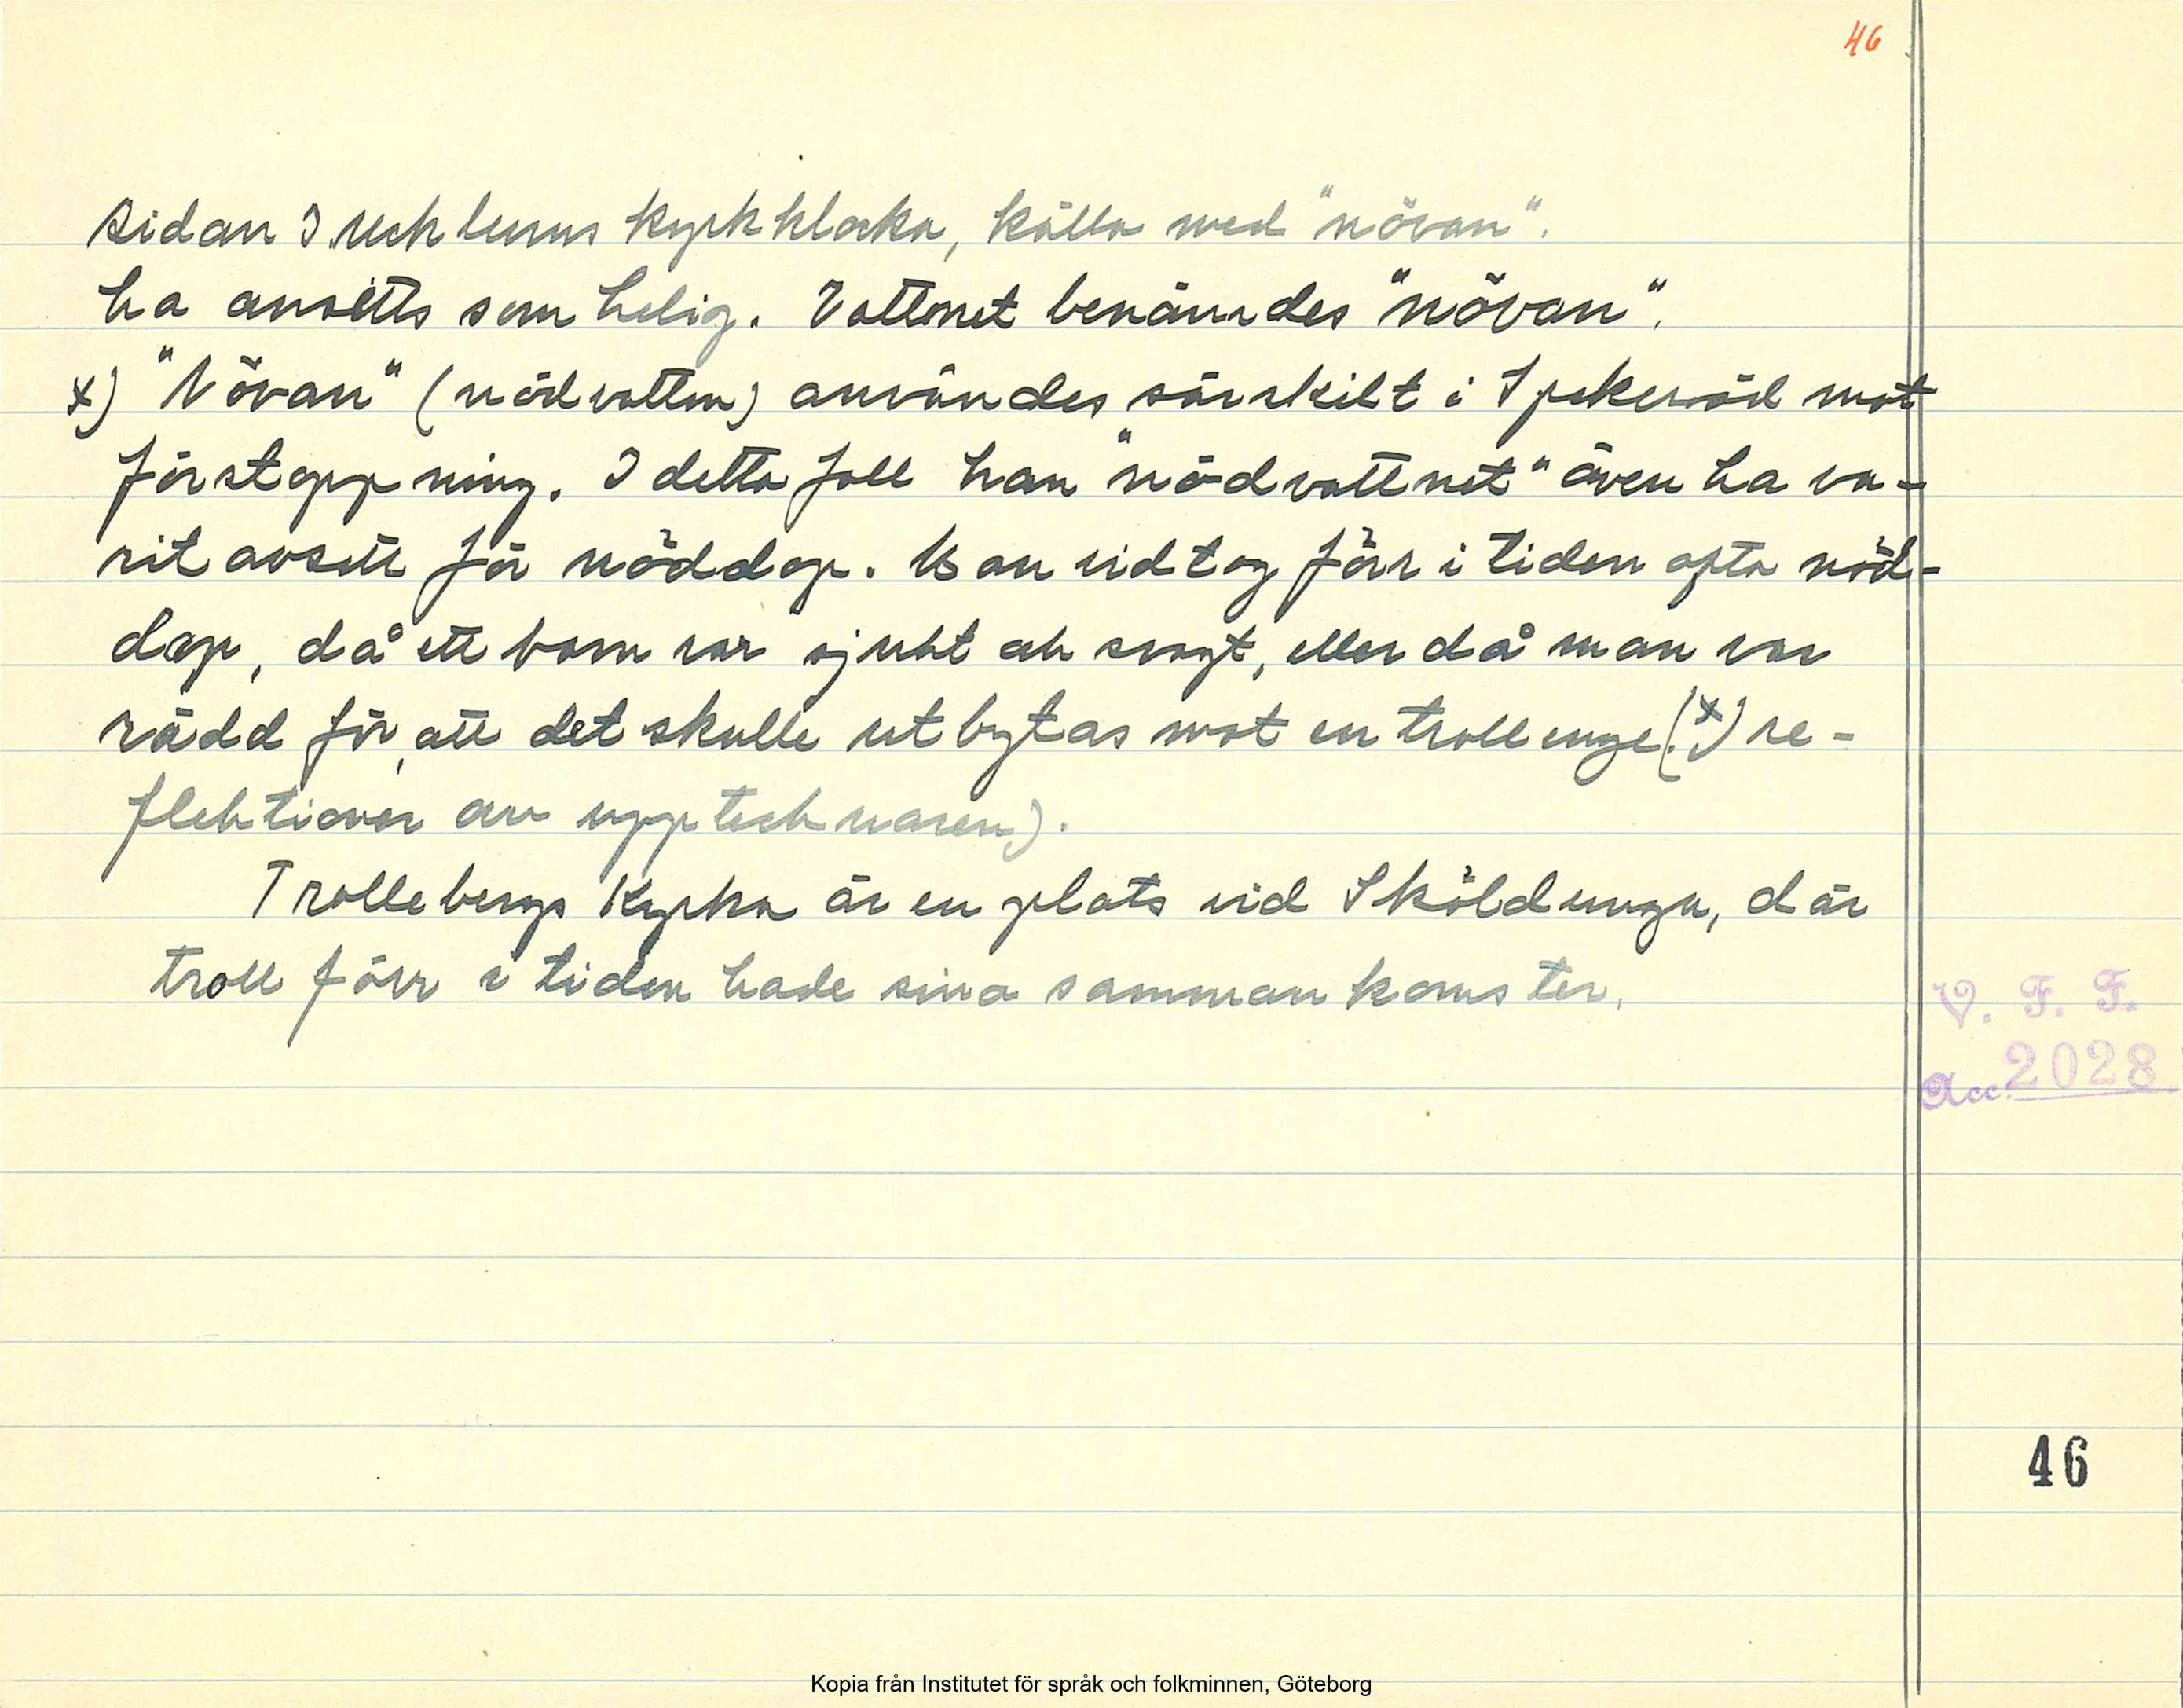 46
sidan kyrkklocka, källa med "növan".
ha ansetts som helig. Vattnet benämndes "növan".
x) "Növan" (nödvatten) användes särskilt i Spekeröd mot
förstoppning. I detta fall kan "nödvattnet" även ha va-
rit avsett för nöddop. Man vidtog förr i tiden ofta nöd-
dop, då ett barn var sjukt och svagt, eller då man var
rädd för, att det skulle utbytas mot en trollunge. (x) re-
flektioner av upptecknaren).
Trollebergs Kyrka är en plats vid Sköldunga, där
troll förr i tiden hade sina sammankomster.
V. F. F.
Acc. 2028
46
Kopia från Institutet för språk och folkminnen, Göteborg